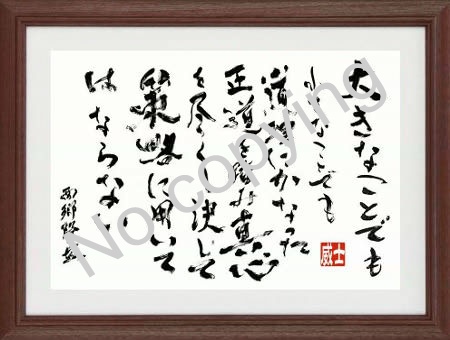 大きなことでも
小なことでも
道理にかなった
正道を踏み真心
を尽くし決して
策略に用いて
はならない
西郷隆盛
威士
No copying